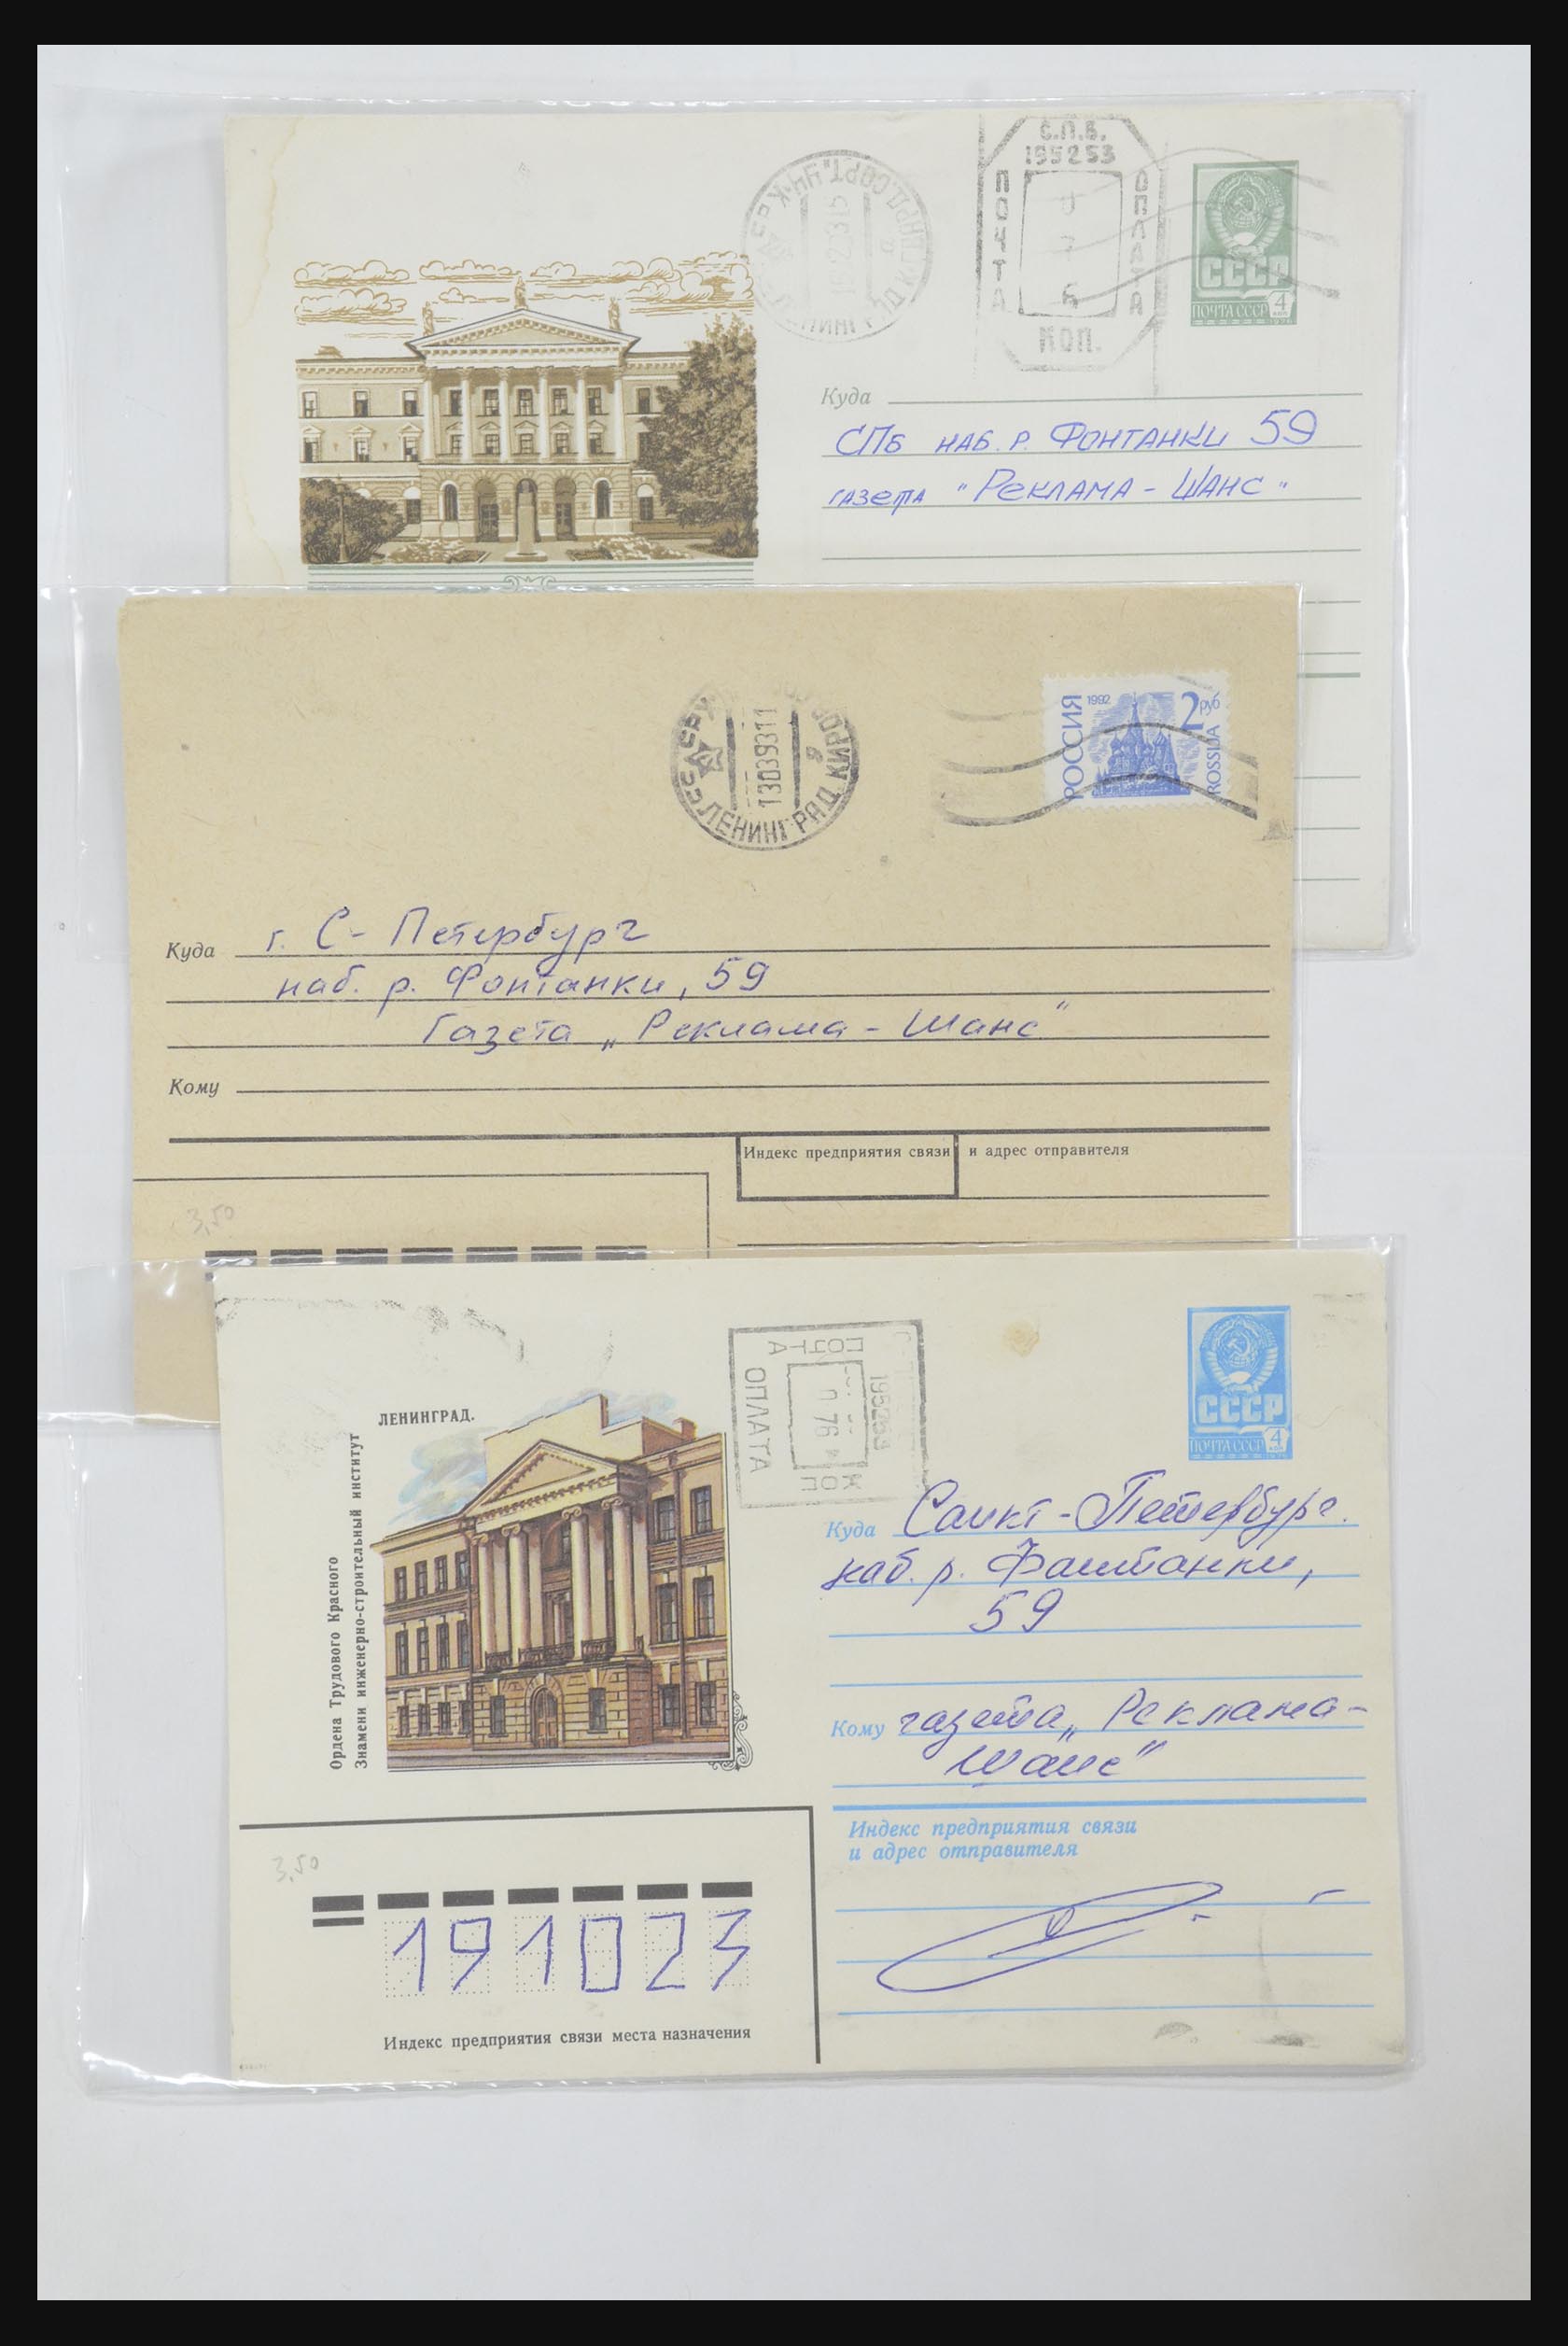 С.П.Б.
195253
ПОЧТА
ОПЛАТА
6
КОП.
СССР
ПОЧТА СССР 4
Куда
СПб наб. р. Фонтанки 59
газета "Реклама-Шанс"
РОССИЯ
1992
2 руб
ROSSIJA
13039311
ЛЕНИНГРАД
Куда г. С-Петербург
наб. р. Фонтанки, 59
Газета „Реклама-Шанс"
Кому
Индекс предприятия связи и адрес отправителя
3,50
ПОЧТА
ОПЛАТА
195253
0 76
КОП
СССР
ПОЧТА СССР 4 КОП
ЛЕНИНГРАД.
Ордена Трудового Красного
Знамени инженерно-строительный институт
Куда Санкт-Петербург.
наб. р. Фонтанки,
59
Кому газета „Реклама-
Шанс"
Индекс предприятия связи
и адрес отправителя
3,50
191023
Индекс предприятия связи места назначения